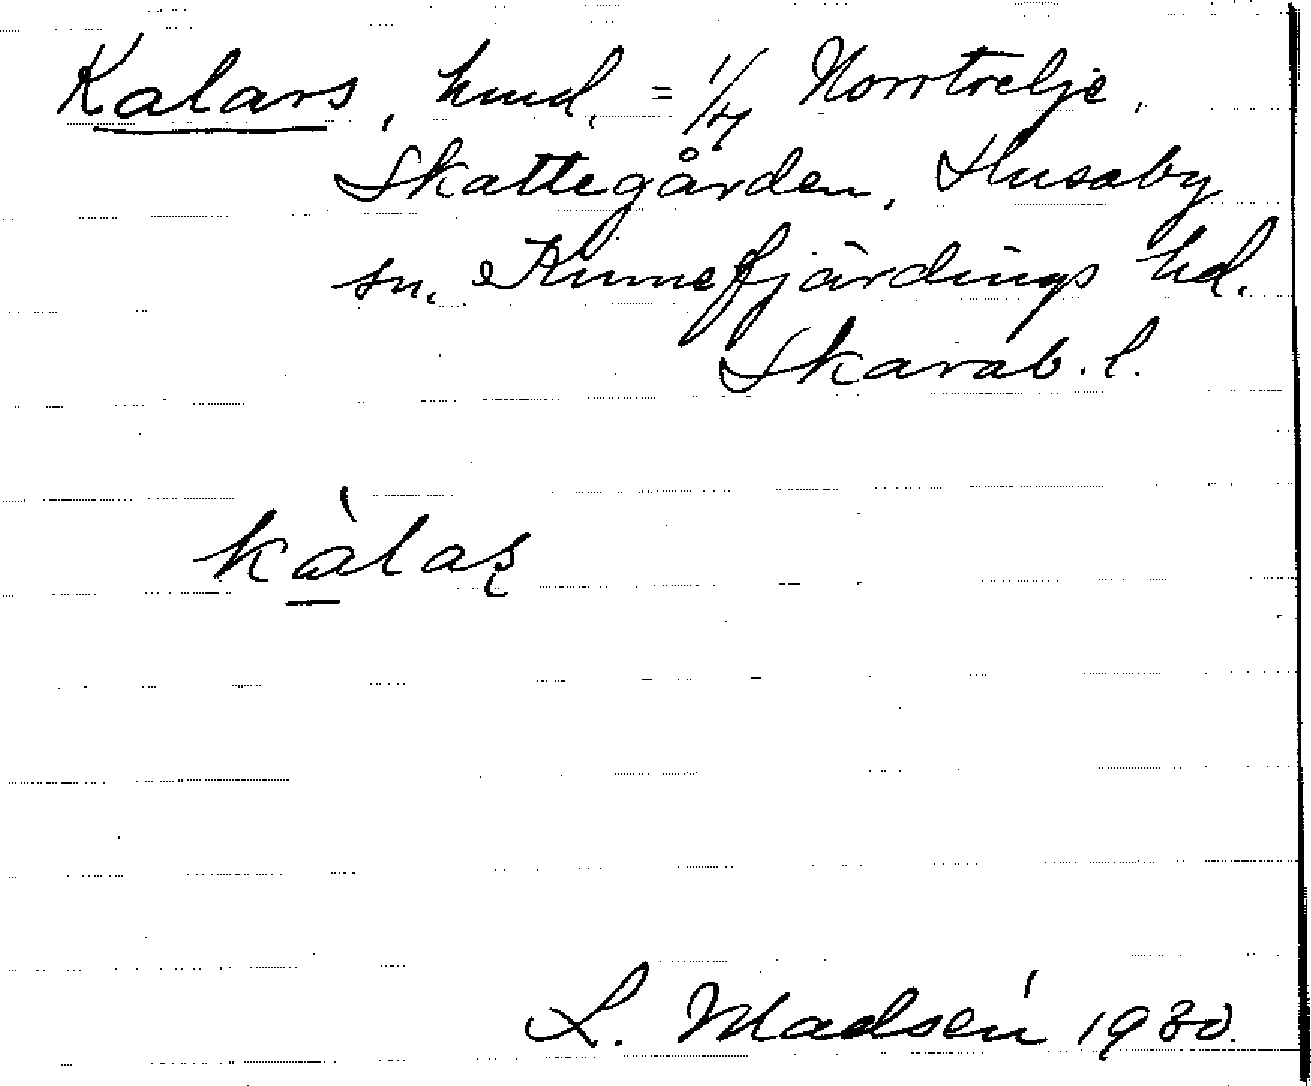 Kalars, hmd. = 1/4 Norrtrelje.
Skattegården, Husaby
sn. Kinnefjärdings hd.
Skarab. l.
kàlaʂ
L. Madsén 1930.